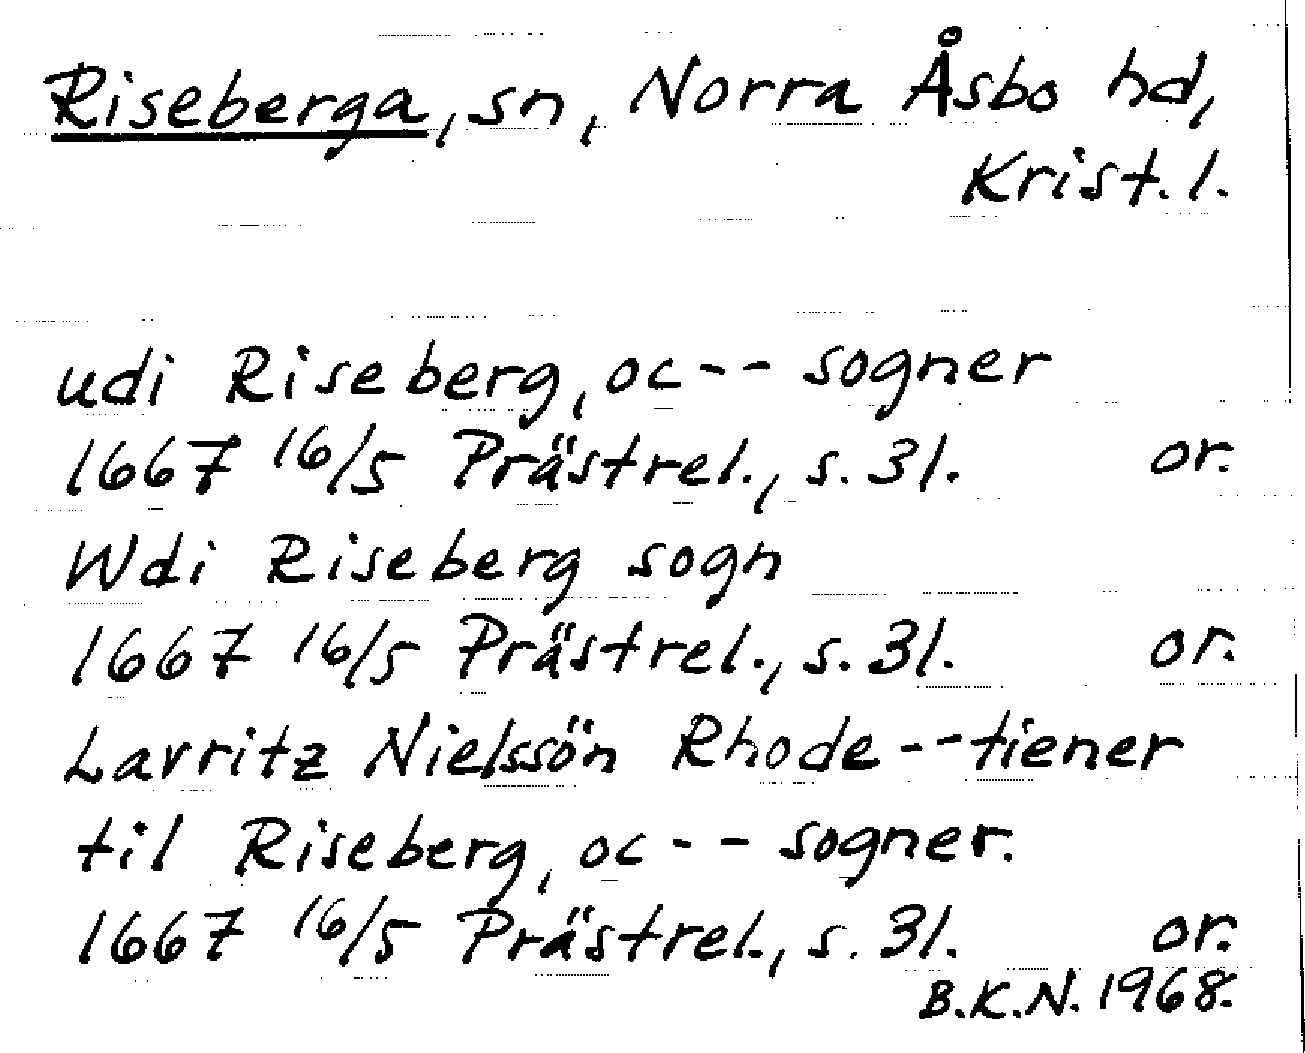 Riseberga, sn, Norra Åsbo hd,
Krist. l.
udi Riseberg, oc -- sogner
1667 16/5 Prästrel., s. 31. or.
Wdi Riseberg sogn
1667 16/5 Prästrel., s. 31. or.
Lavritz Nielssön Rhode -- tiener
til Riseberg, oc -- sogner.
1667 16/5 Prästrel., s. 31. or.
B.K.N. 1968.